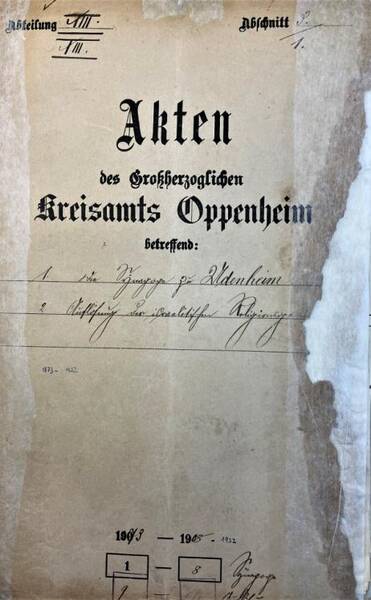 Abteilung VIII. Abschnitt 3.
VIII. 1.
Akten
des Großherzoglichen
Kreisamts Oppenheim
betreffend:
1. die Synagoge zu Udenheim
2. Auflösung der israelitischen Religionsge
1873 - 1932
1873 — 1905 - 1932
1 — 8 Synagoge